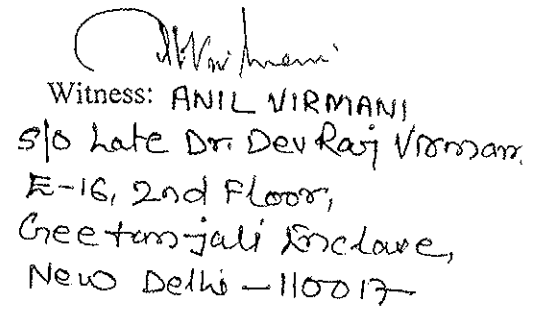 Witness: ANIL VIRMANI
S/o Late Dr. Dev Raj Virmani
E-16, 2nd Floor,
Geetanjali Enclave,
New Delhi - 110017